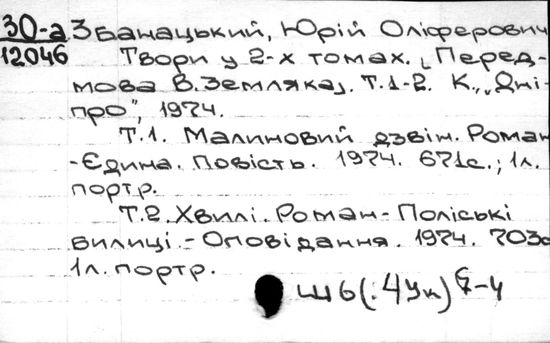 30-а Збанацький, Юрій Оліферович
12046 Твори у 2-х томах. [Перед-
мова В. Земляка]. Т.1-2. К., „Дні-
про", 1974.
Т.1. Малиновий дзвін. Роман
-Єдина. Повість. 1974. 671с.; 1л.
портр.
Т.2. Хвилі. Роман-Поліські
билиці.-Оповідання. 1974. 703с
1л. портр.
Ш6(:4Ук)